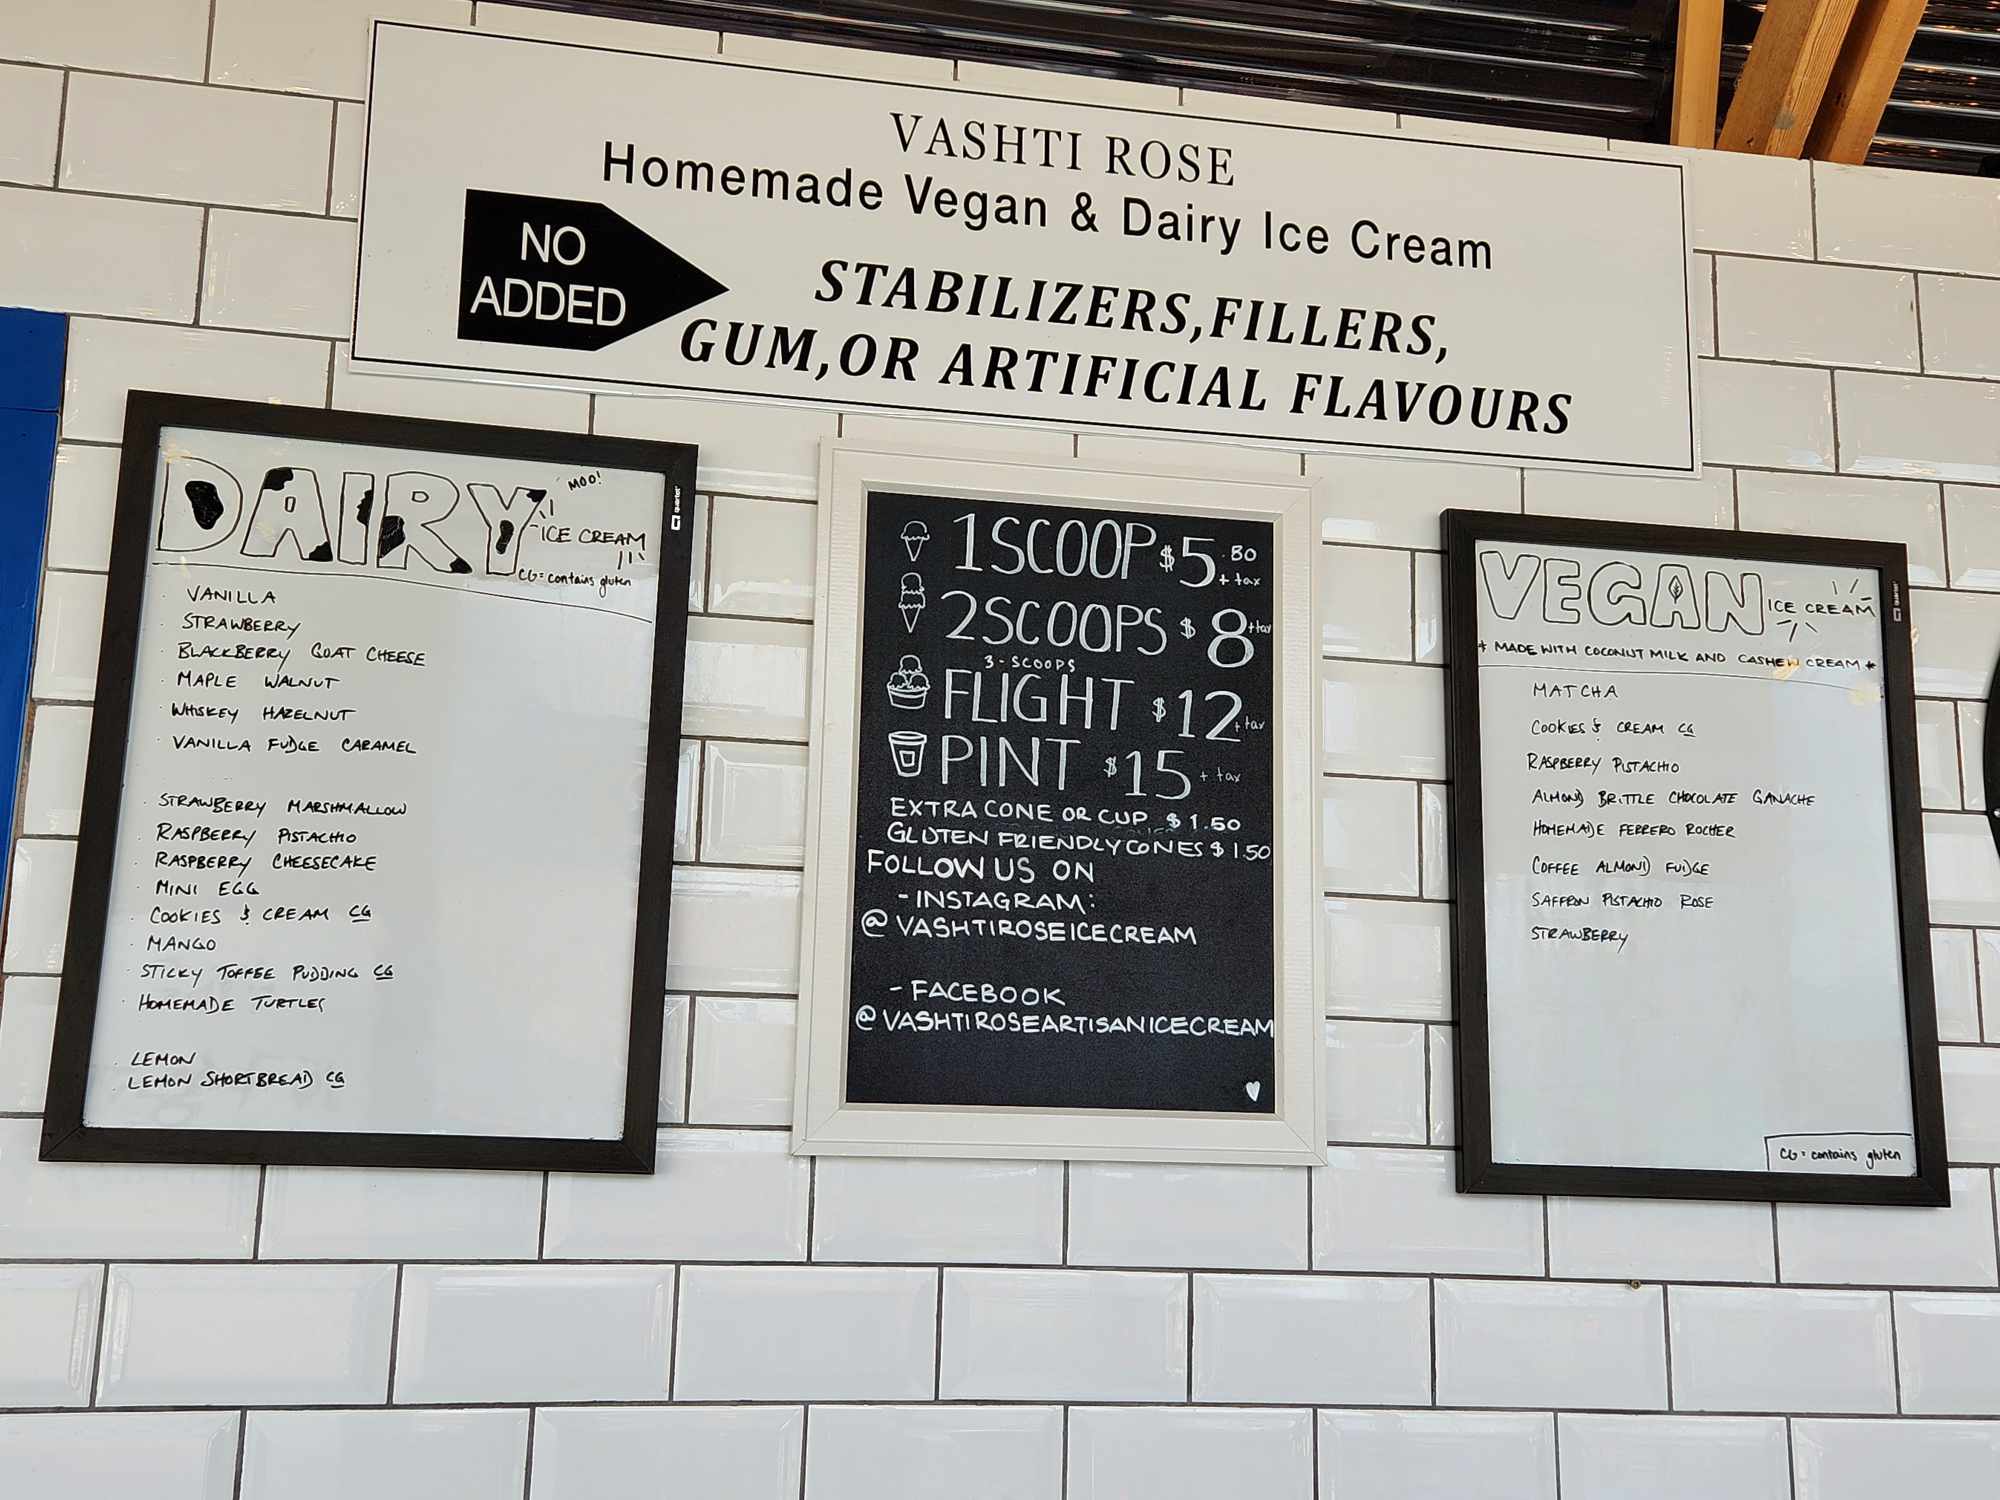 VASHTI ROSE
Homemade Vegan & Dairy Ice Cream
NO
ADDED
STABILIZERS,FILLERS,
GUM,OR ARTIFICIAL FLAVOURS
DAIRY
MOO!
ICE CREAM
CG = contains gluten
VANILLA
STRAWBERRY
BLACKBERRY GOAT CHEESE
MAPLE WALNUT
WHISKEY HAZELNUT
VANILLA FUDGE CARAMEL
STRAWBERRY MARSHMALLOW
RASPBERRY PISTACHIO
RASPBERRY CHEESECAKE
MINI EGG
COOKIES & CREAM CG
MANGO
STICKY TOFFEE PUDDING CG
HOMEMADE TURTLES
LEMON
LEMON SHORTBREAD CG
quartet
1 SCOOP $5.80
+ tax
2 SCOOPS $8 +tax
3-SCOOPS
FLIGHT $12 + tax
PINT $15 + tax
EXTRA CONE OR CUP $1.50
GLUTEN FRIENDLY CONES $1.50
FOLLOW US ON
- INSTAGRAM:
@VASHTIROSEICECREAM
- FACEBOOK
@VASHTIROSEARTISANICECREAM
VEGAN ICE CREAM
* MADE WITH COCONUT MILK AND CASHEW CREAM *
MATCHA
COOKIES & CREAM CG
RASPBERRY PISTACHIO
ALMOND BRITTLE CHOCOLATE GANACHE
HOMEMADE FERRERO ROCHER
COFFEE ALMOND FUDGE
SAFFRON PISTACHIO ROSE
STRAWBERRY
CG = contains gluten
quartet